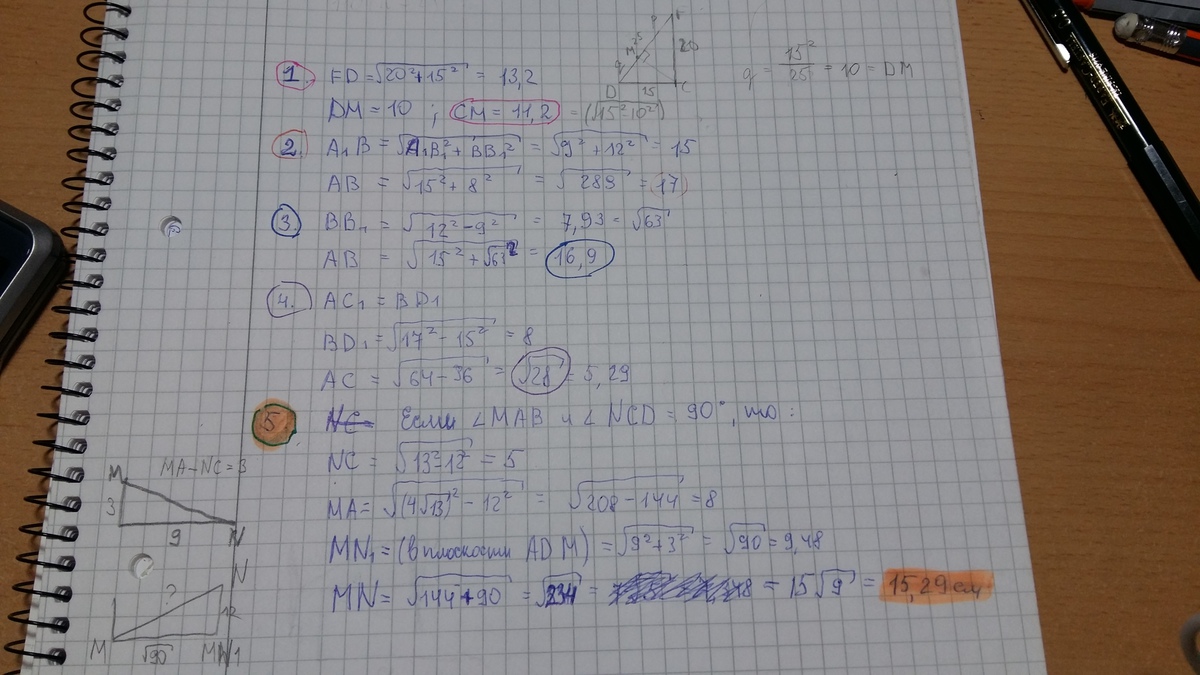 1. FD = √20²+15² = 13,2
DM = 10 ; CM = 11,2 = (√15²-10²)
M 25
20
D 15 C
q = 15²/25 = 10 = DM
2. A₁B = √A₁B₁² + BB₁² = √9² + 12² = 15
AB = √15² + 8² = √289 = 17
3. BB₁ = √12² - 9² = 7,93 = √63
AB = √15² + √63² = 16,9
4. AC₁ = BD₁
BD₁ = √17² - 15² = 8
AC = √64 - 36 = √28 = 5,29
5 NC Если ∠MAB и ∠NCD = 90°, то :
NC = √13² - 12² = 5
MA = √(4√13)² - 12² = √208 - 144 = 8
MN₁ = (в плоскости ADM) = √9² + 3² = √90 = 9,48
MN = √144 + 90 = √234 = = 15√9 = 15,29 см
MA - NC = 3
M
3
9 N
N
?
12
M √90 MN1